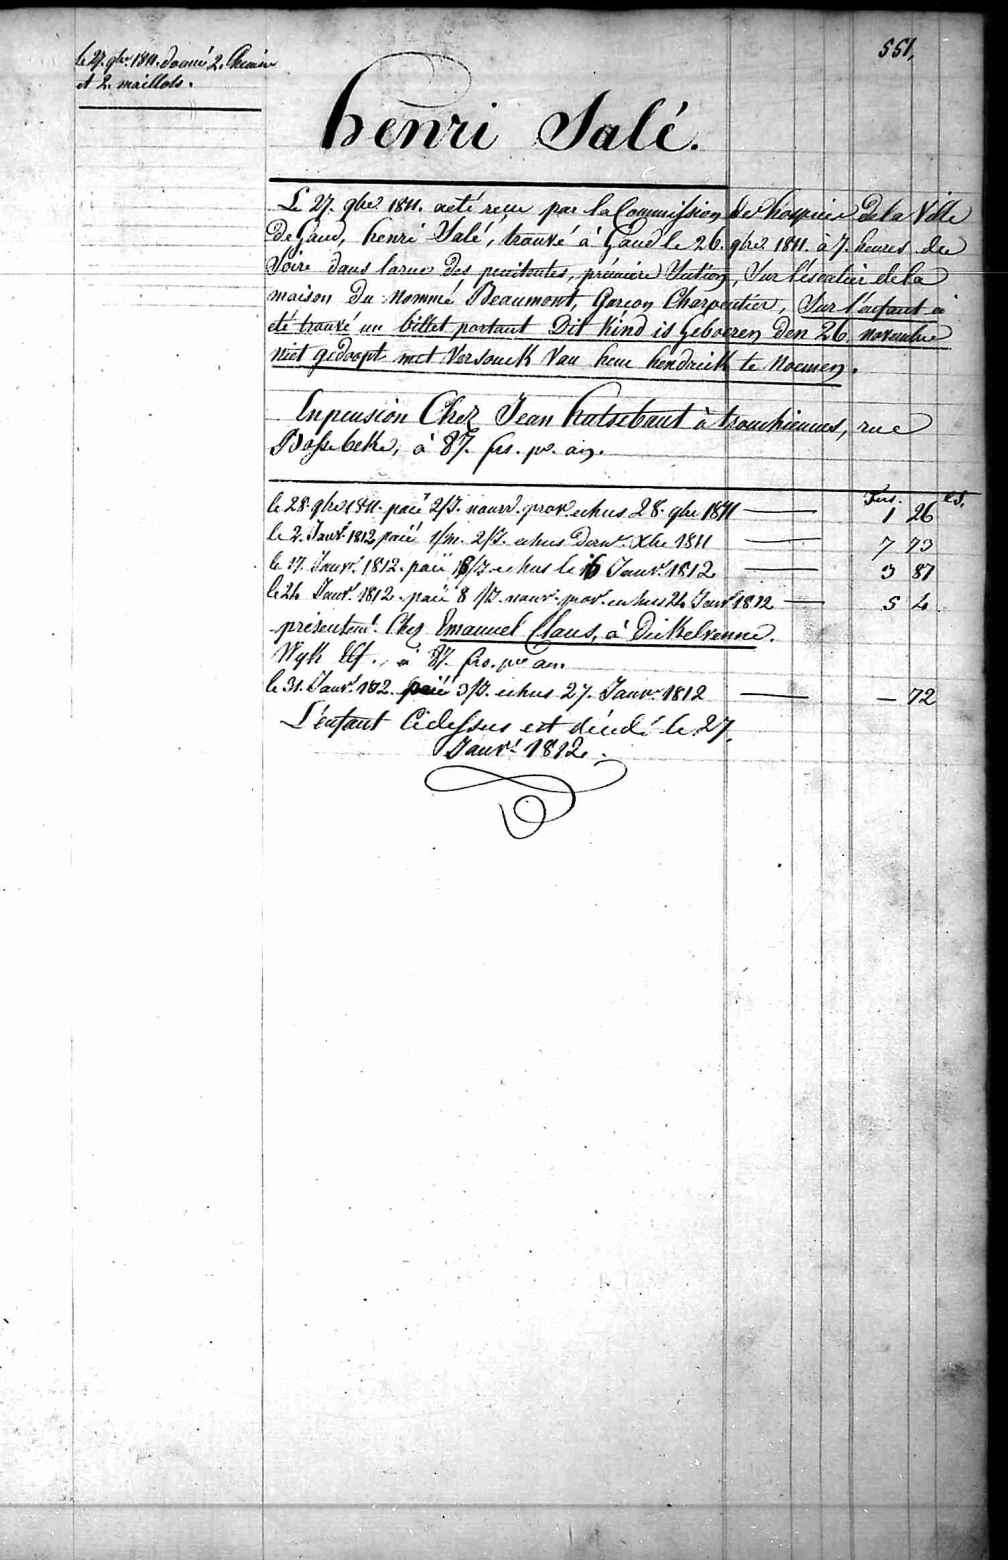 551,
le 27. 9bre 1811. donné 2. Chemise
et 2. maillots.
henri Salé.
Le 27. 9bre 1811. a eté recu par la Commission de hospices de la Ville
de Gand, henri Salé, trouvé à Gand le 26. 9bre 1811. à 7. heures du
Soire dans la rue des penitentes, prémière Section, Sur l'éscalier de la
maison du Nommé Beaumont, Garçon Charpentier, Sur l'enfant a
été trouvé un billet portant Dit Kind is Geboeren den 26. novembre
niet gedoopt met Versouck Van hem hendrick te Noemen.
En pension Chez Jean hutsebaut à tronchiennes, rue
Bossebeke, à 87. frs. pr. an.
Frs. Cs.
le 28. 9bre 1811. paié 2/J. nourr. prov. echus 28. 9bre 1811 — 1 26
le 2. Janvr. 1812, paié 1/m. 2/J. echus dernr. Xbre 1811 — 7 73
le 17. Janvr. 1812. paié 16/J. echus le 16 Janvr. 1812 — 3 87
le 24 Janvr. 1812. paié 8 /J. nourr. prov. echus 24 Janvr 1812 — 5 4.
présentemt. Chez Emanuel Claus, à Dickelvenne.
Wyk à 87. frs. pr an.
le 31. Janvr. 1812. paié 3/J. echus 27. Janvr. 1812 — — 72
L'enfant Cidessus est décédé le 27.
Janvr. 1812.